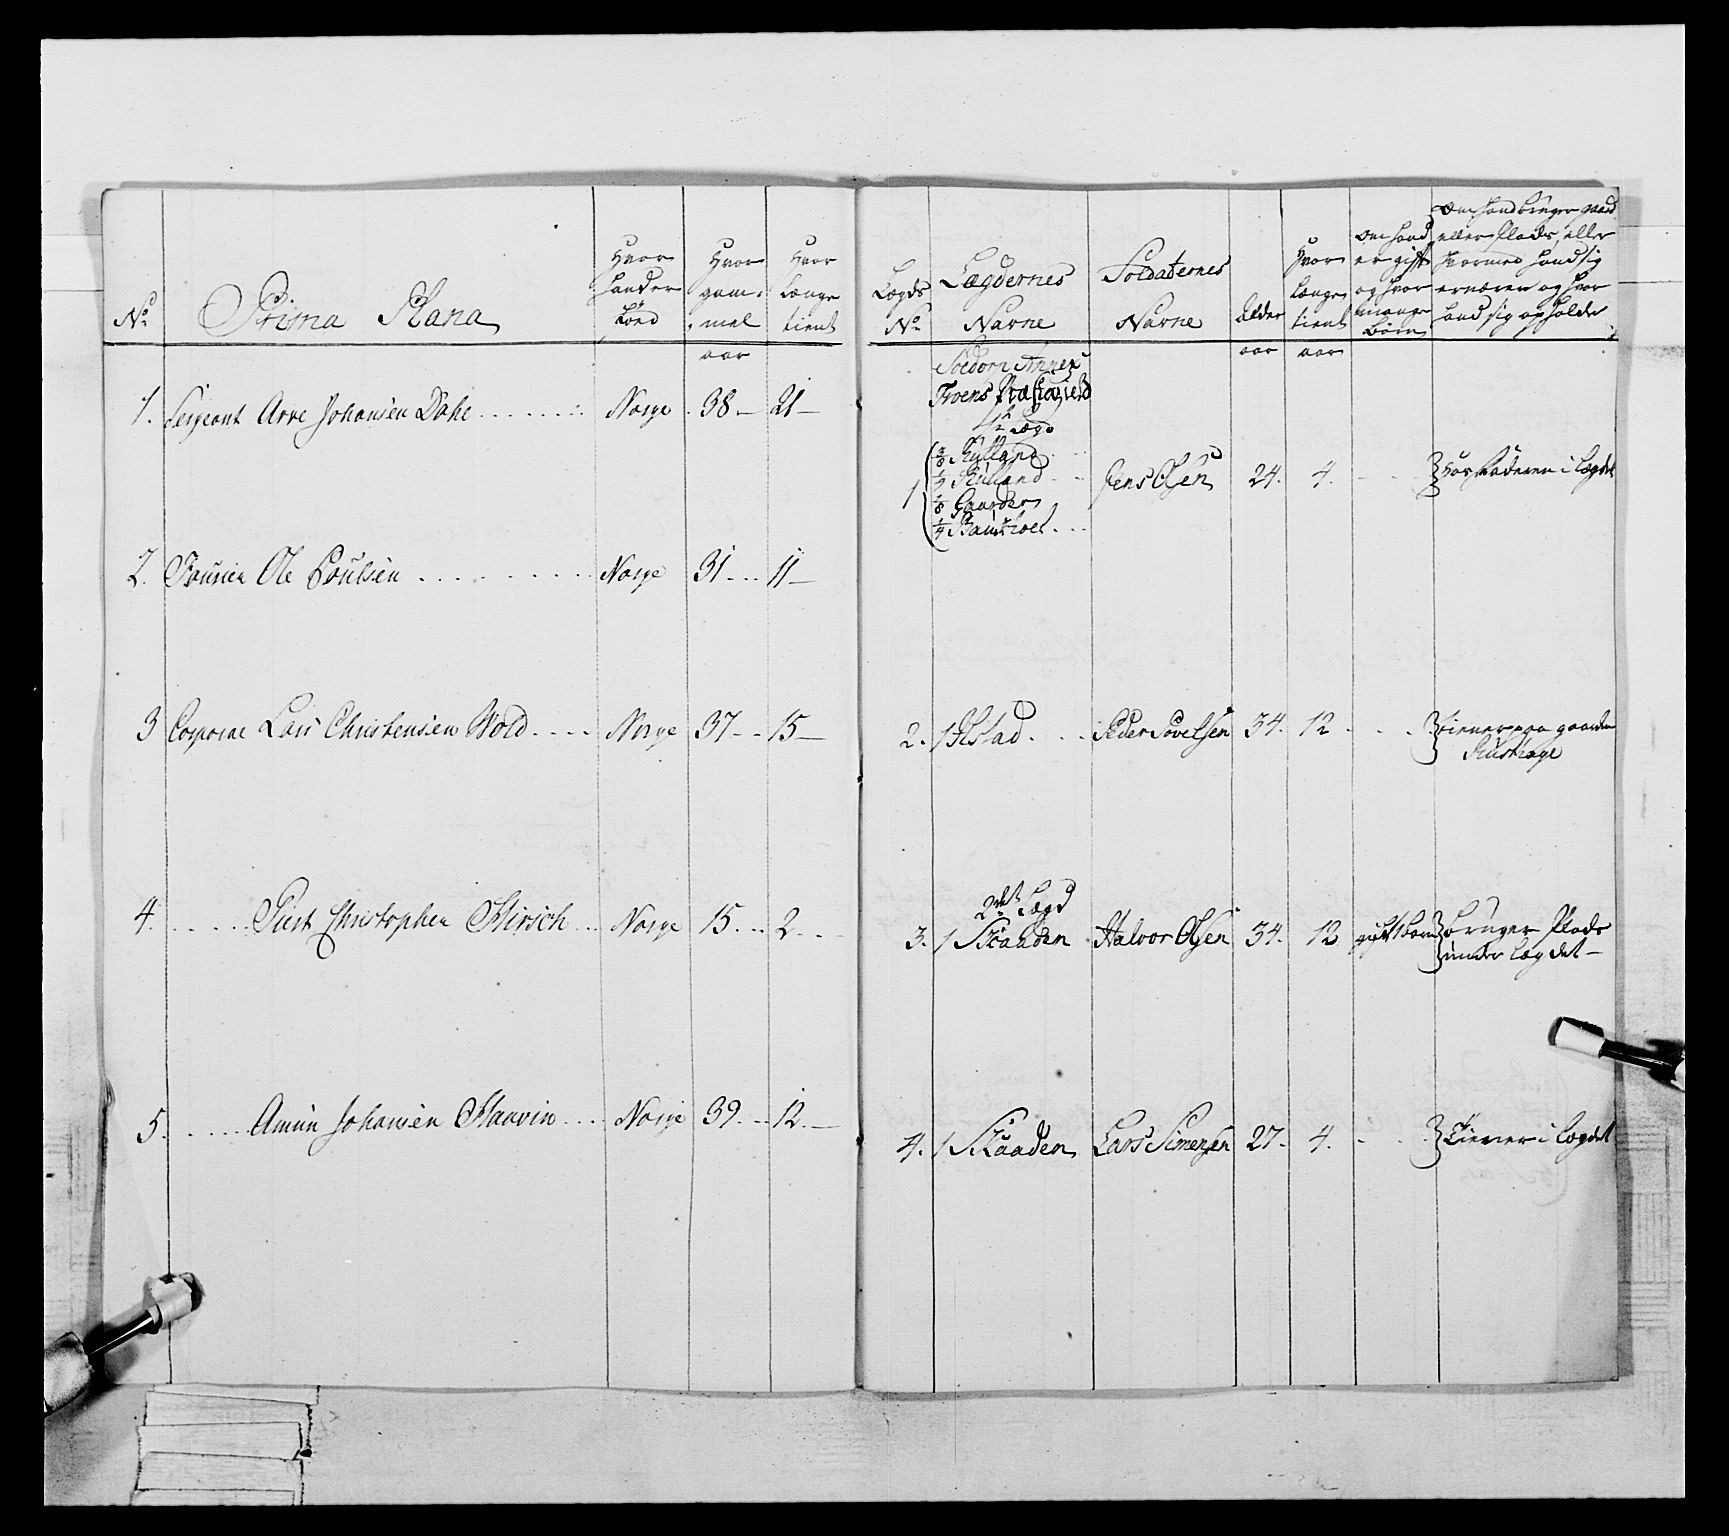 No. Prima Plana
Hvor
hand er
föed
Hvor
gam-
mel
Hvor
længe
tient
aar
1. Sergeant Arve Johansen Dahl Norge 38 21
2. Fourier Ole Poulsen Norge 31 11
3 Corporal Lars Christensen Wold Norge 37 15
4. Christopher Hirsch Norge 15 2
5. Amun Johansen Haavin Norge 39 12
Lægds
No.
Lægdernes
Navne
Soldaternes
Navne
Alder
Hvor
længe
tient
om hand
er gift
og hvor
mange
Börn
om hand bruger gaard
eller Plads, eller
hvormed hand sig
ernærer og hvor
hand sig opholder
aar aar
Annex
Præstegield
1te Lægd
1 Jens Olsen 24. 4. hos faderen i Lægdet
2. 1 Peder 34. 12 tiener paa gaarden
3. 2det Lægd
1 Skaaden Halvor Olsen 34. 12 gift 1 barn bruger Plads
under Lægdet
4. 1 Skaaden Lars Simensen 27. 4. tiener i Lægdet